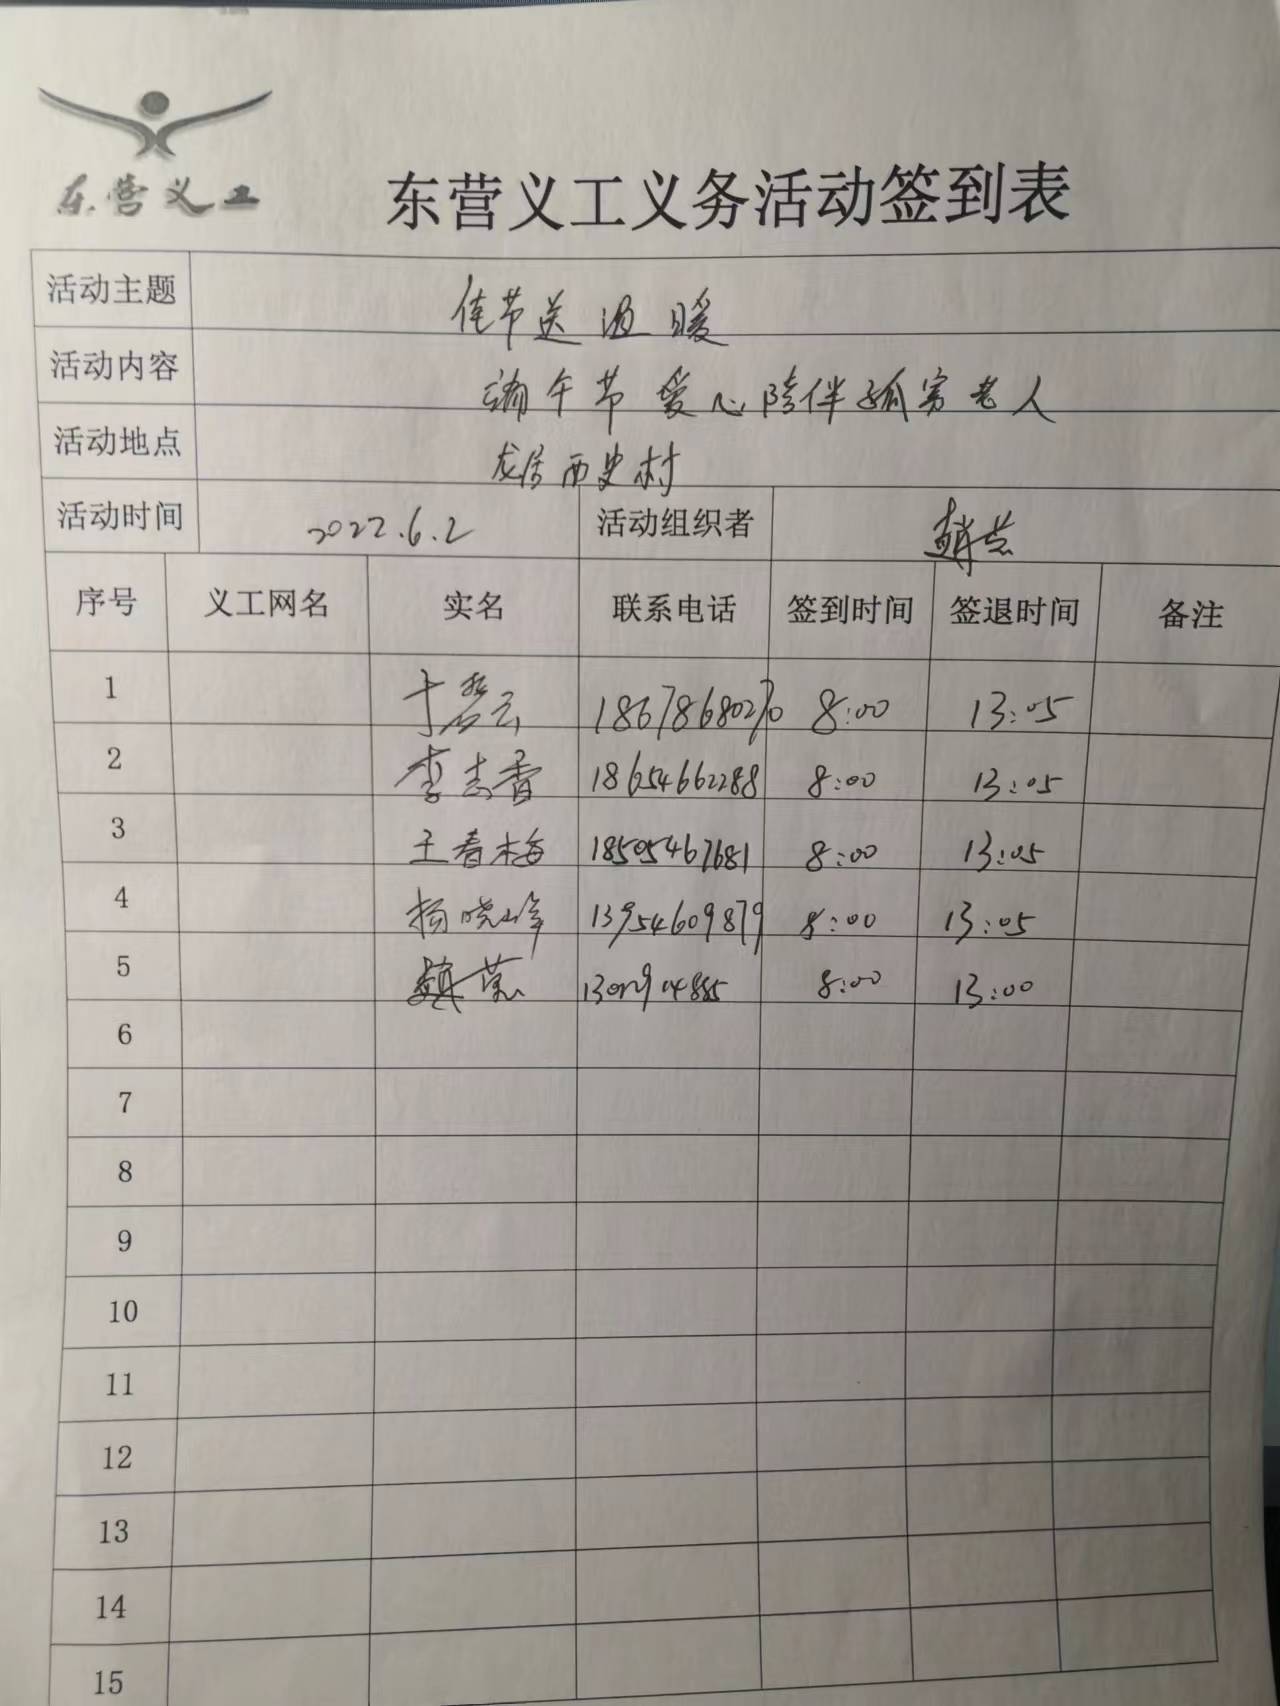 东营义工
东营义工义务活动签到表
活动主题 佳节送温暖
活动内容 端午节爱心陪伴孤寡老人
活动地点 龙居西史村
活动时间 2022.6.2 活动组织者
序号 义工网名 实名 联系电话 签到时间 签退时间 备注
1 18678680270 8:00 13:05
2 李志香 18654662288 8:00 13:05
3 王春梅 18505467681 8:00 13:05
4 杨晓峰 13954609879 8:00 13:05
5 8:00 13:00
6
7
8
9
10
11
12
13
14
15